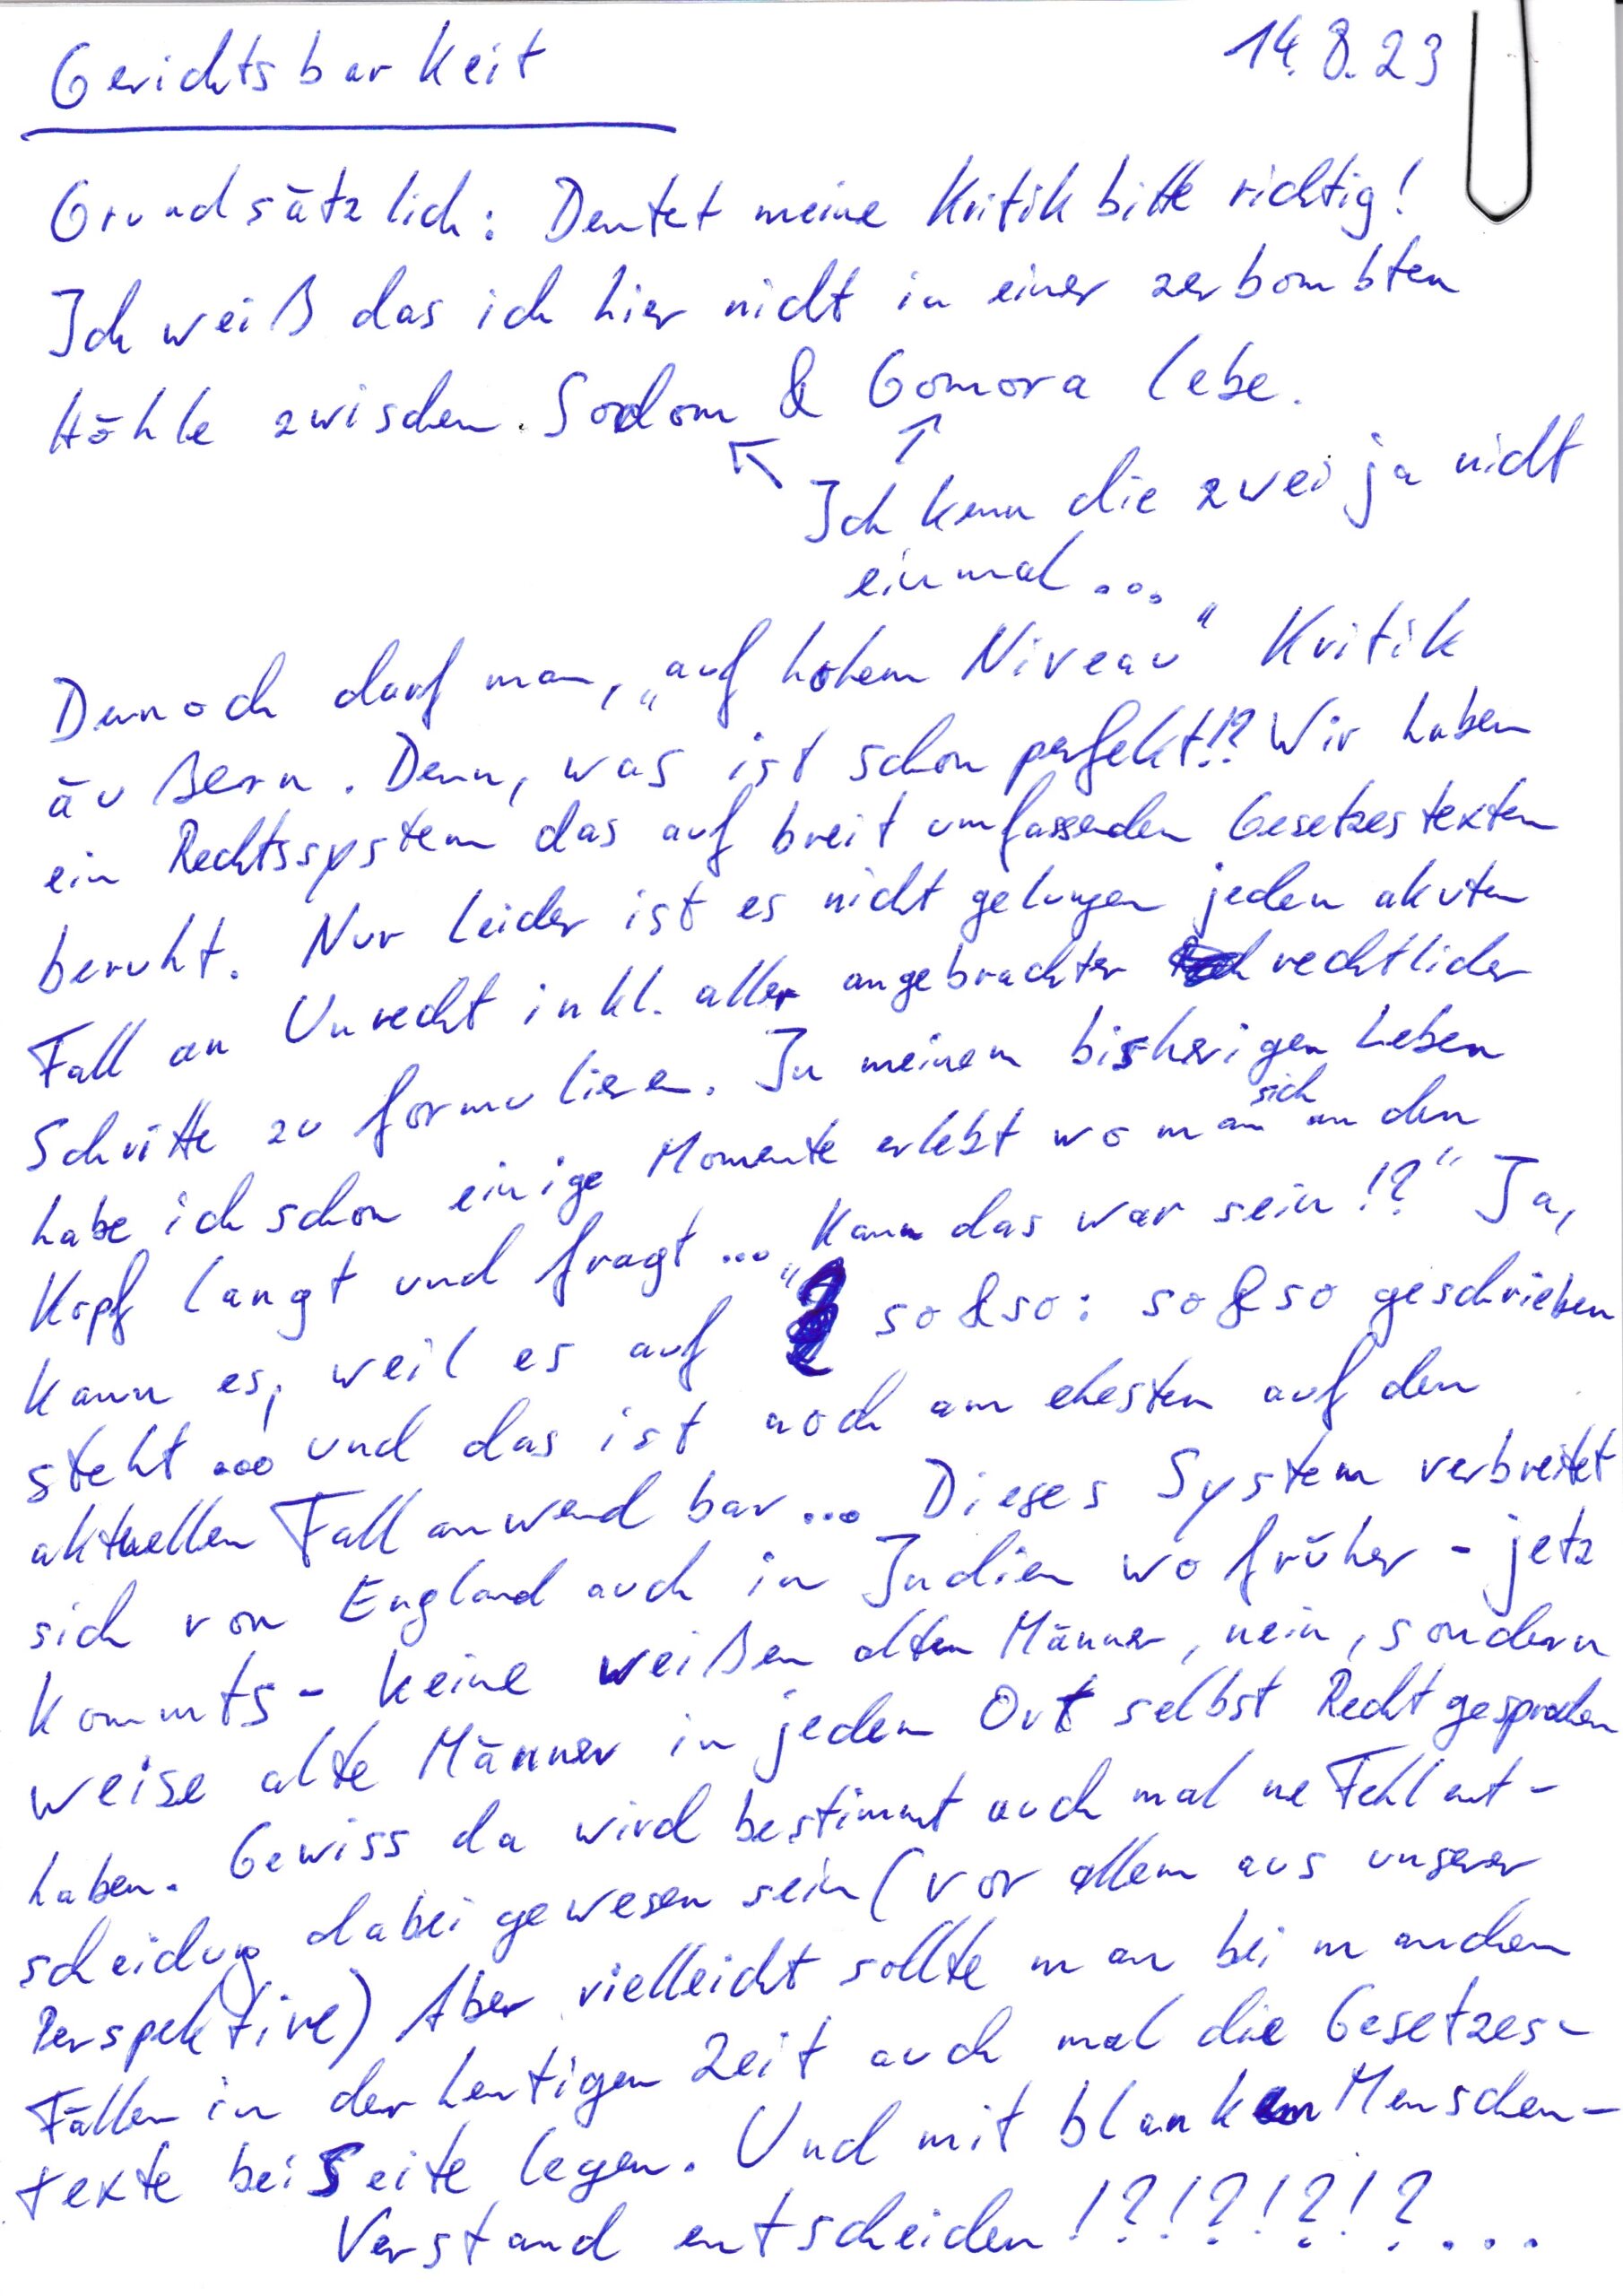 Gerichtsbarkeit 14.8.23
Grundsätzlich: Deutet meine Kritik bitte richtig!
Ich weiß das ich hier nicht in einer zerbombten
Höhle zwischen Sodom & Gomora lebe.
↖ ↑
Ich kenn die zwei ja nicht
einmal...
Dennoch darf man, „auf hohem Niveau" Kritik
äußern. Denn, was ist schon perfekt!? Wir haben
ein Rechtssystem das auf breit umfassenden Gesetzestexten
beruht. Nur leider ist es nicht gelungen jeden akuten
Fall an Unrecht inkl. aller angebrachter rechtlicher
Schritte zu formulieren. In meinem bisherigen Leben
habe ich schon einige Momente erlebt wo man sich an den
Kopf langt und fragt... „Kann das war sein!?" Ja,
kann es, weil es auf § so&so: so&so geschrieben
steht ... und das ist noch am ehesten auf den
aktuellen Fall anwendbar... Dieses System verbreitet
sich von England auch in Indien wo früher - jetz
kommts - keine weißen alten Männer, nein, sondern
weise alte Männer in jedem Ort selbst Recht gesprochen
haben. Gewiss da wird bestimmt auch mal ne Fehlent-
scheidung dabei gewesen sein (vor allem aus unserer
Perspektive) Aber vielleicht sollte man bei manchen
Fällen in der heutigen Zeit auch mal die Gesetzes-
texte beiseite legen. Und mit blankem Menschen-
Verstand entscheiden!?!?!?!?...